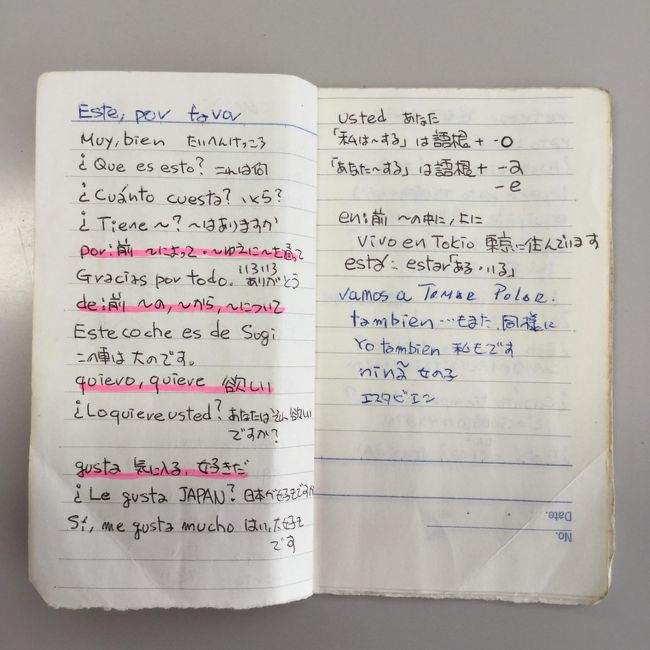 Este, por favor
Muy, bien たいへんけっこう
¿Que es esto? これは何
¿Cuánto cuesta? いくら?
¿Tiene ~? ~はありますか
por:前 ~によって・~ゆえに~を通って
Gracias por todo. いろいろありがとう
de:前 ~の,~から,~について
Este coche es de Sugi
この車は のです。
quiero, quiere 欲しい
¿Lo quiere usted? あなたは 欲しい
ですか?
gusta 気に入る, 好きだ
¿Le gusta JAPAN? 日本が好きですか
Sí, me gusta mucho はい,大好き
です
usted あなた
「私は~する」は語根 + -o
「あなた~する」は語根 + -a
-e
en:前 ~の中に,上に
Vivo en Tokio 東京に住んでいます
está: estar「ある・いる」
vamos a Tomar
tambien …もまた,同様に
Yo tambien 私もです
niña 女の子
エスタ ビエン
Date.
No.